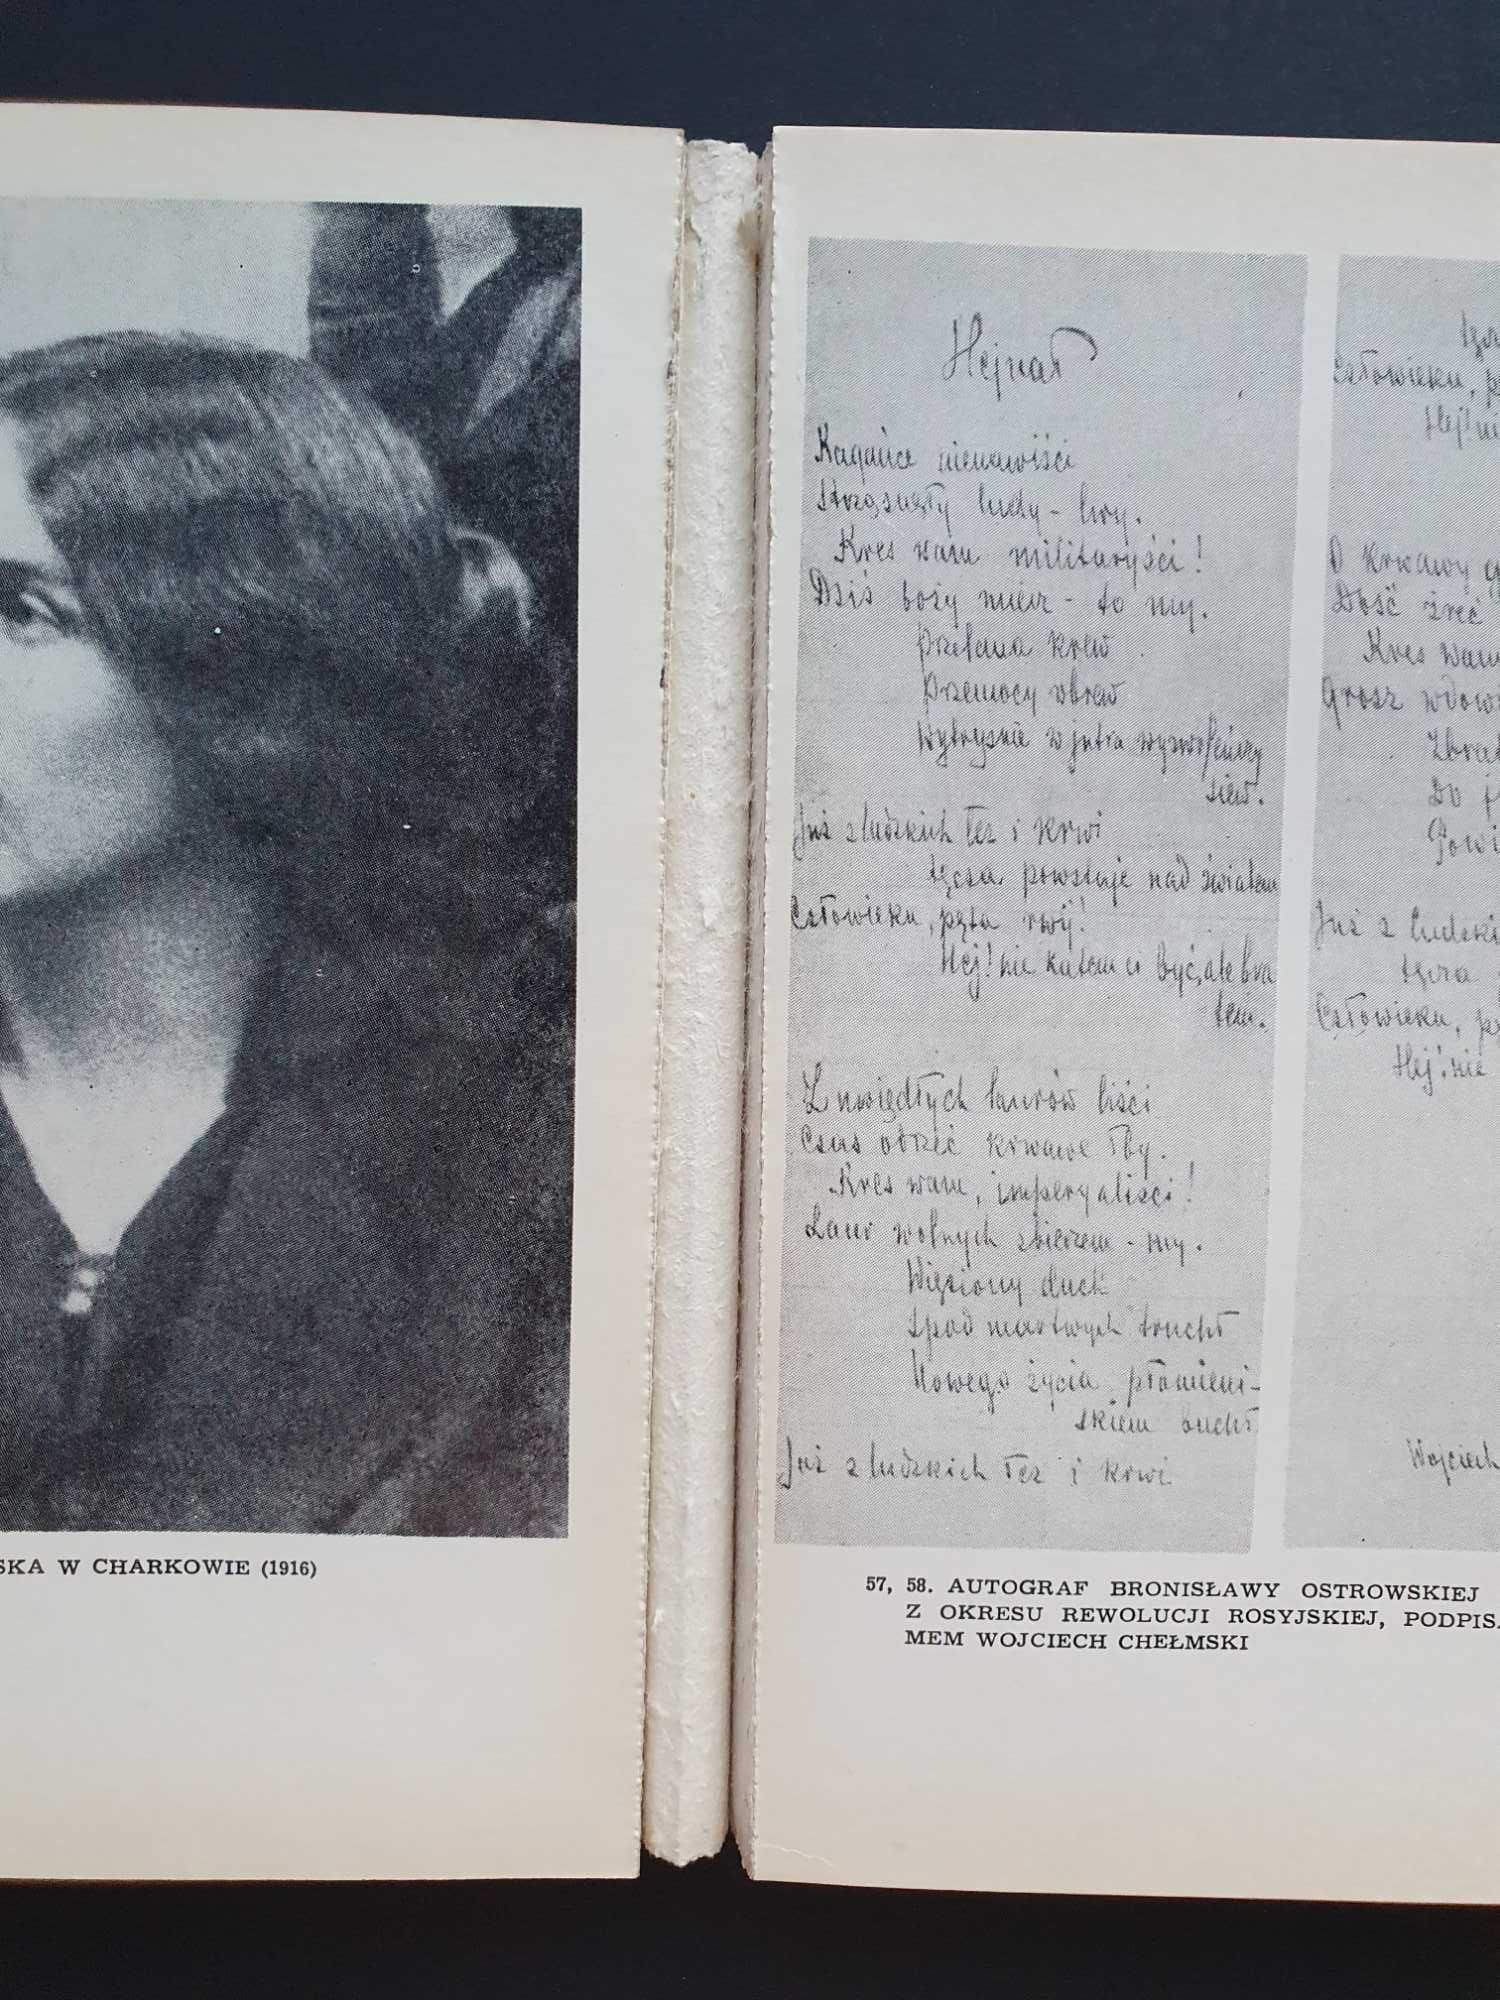 SKA W CHARKOWIE (1916)
Hejnał
Kagańce nienawiści
Strząsnęły ludy - lwy.
Kres wam militaryści!
Dziś boży miecz - to my.
Przelana krew
Przemocy wbrew
Wytryśnie w jutra wyzwoleńczy
siew.
Już z ludzkich łez i krwi
tęcza powstaje nad światem
Człowieku, pęta rwij!
Hej! nie katem ci być, ale bra
tem.
Z uwiędłych laurów liści
Czas obrzeć krwawe łby.
Kres wam, imperyaliści!
Laur wolnych zbierzem - my.
Więziony duch
Spod martwych truchł
Nowego życia płomieni-
skiem buchł
Już z ludzkich łez i krwi
Człowieku, p
Hej! ni
O krwawy
Dość żreć
Kres wam
Grosz wdow
Zbrat
Do j
Powi
Już z ludzki
tęcza
Człowieku, p
Hej! nie
Wojciech
57, 58. AUTOGRAF BRONISŁAWY OSTROWSKIEJ
Z OKRESU REWOLUCJI ROSYJSKIEJ, PODPISA
MEM WOJCIECH CHEŁMSKI